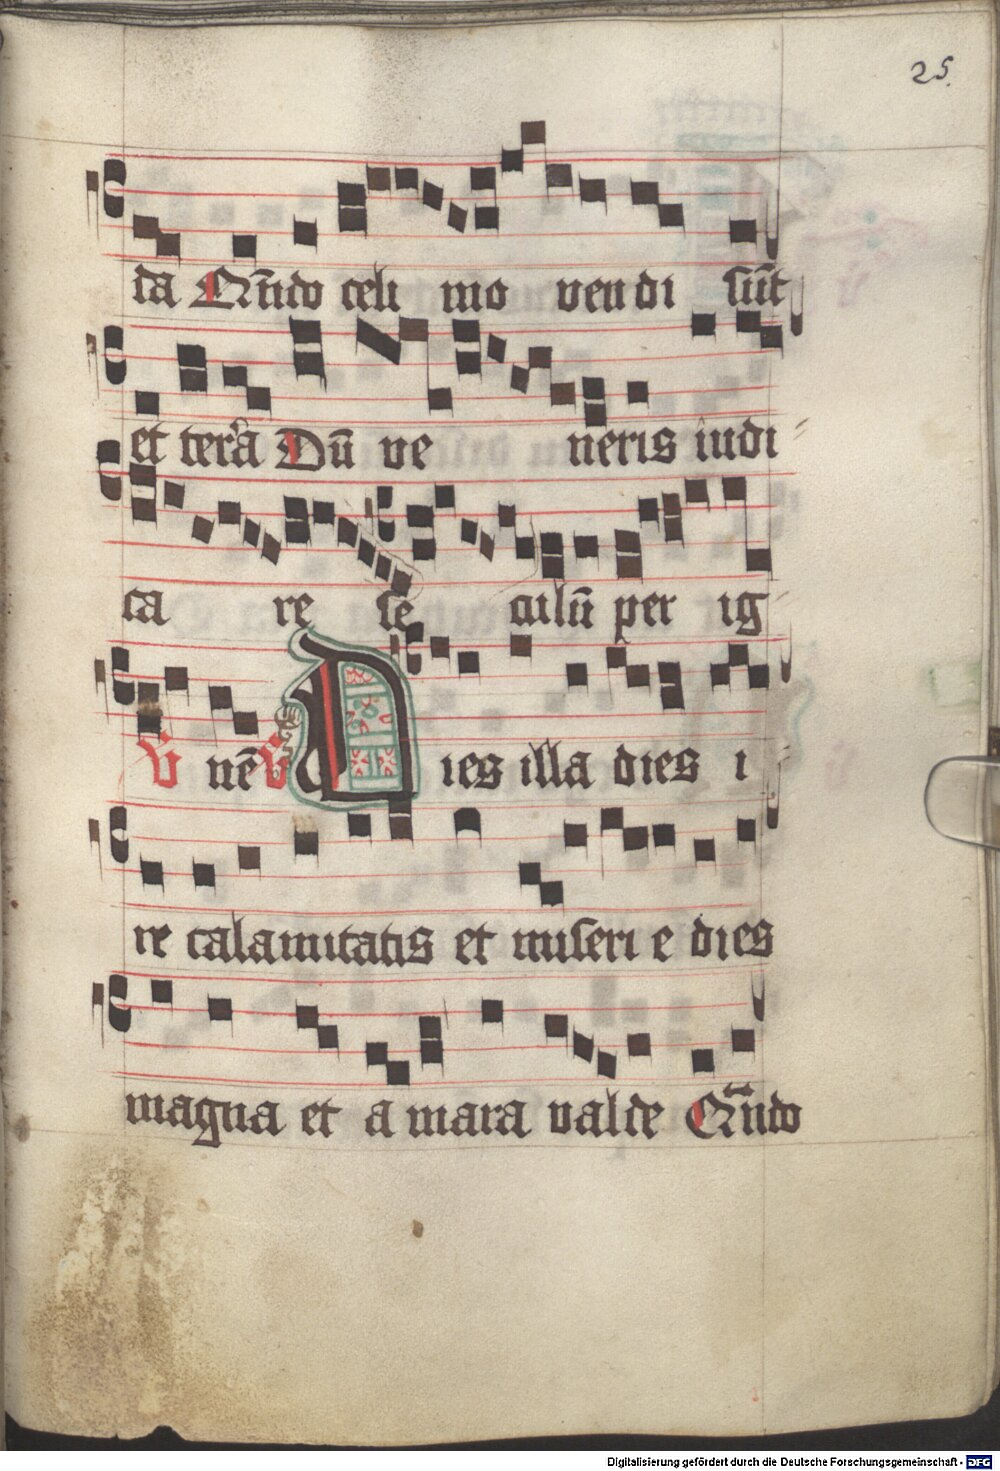 25.
ta Qn̄do celi mo vendi sūt
et terra Dū ve neris iudi
ca re se culū per ig
V nē V Dies illa dies i
re calamitatis et miseri e dies
magna et a mara valde Qn̄do
Digitalisierung gefördert durch die Deutsche Forschungsgemeinschaft - DFG